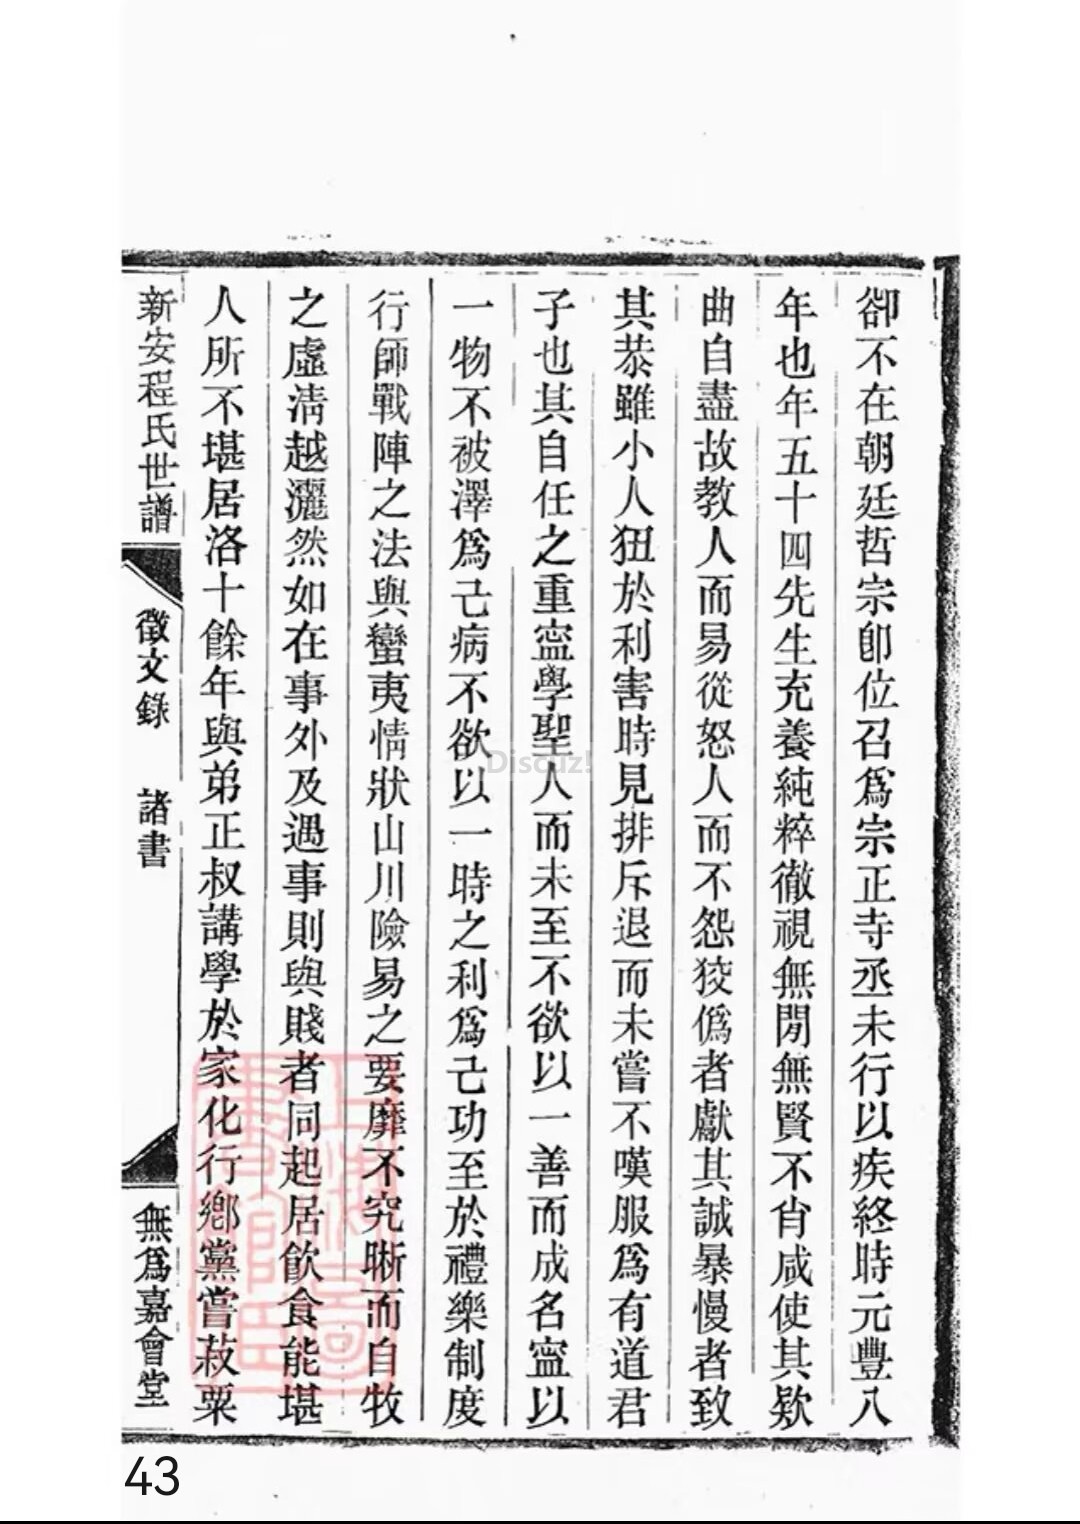 卻不在朝廷哲宗卽位召爲宗正寺丞未行以疾終時元豐八
年也年五十四先生充養純粹徹視無閒無賢不肖咸使其欵
曲自盡故教人而易從怒人而不怨狡僞者獻其誠暴慢者致
其恭雖小人狃於利害時見排斥退而未嘗不嘆服爲有道君
子也其自任之重寍學聖人而未至不欲以一善而成名寍以
一物不被澤爲己病不欲以一時之利爲己功至於禮樂制度
行師戰陣之法與蠻夷情狀山川險易之要靡不究晰而自牧
之虛清越灑然如在事外及遇事則與賤者同起居飲食能堪
人所不堪居洛十餘年與弟正叔講學於家化行鄉黨嘗菽粟
新安程氏世譜
徵文錄 諸書
無爲嘉會堂
上海圖書館臣
Discuz!
43